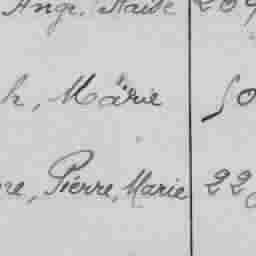 Ange, Marie 20
h, Marie 50
re, Pierre, Marie 22